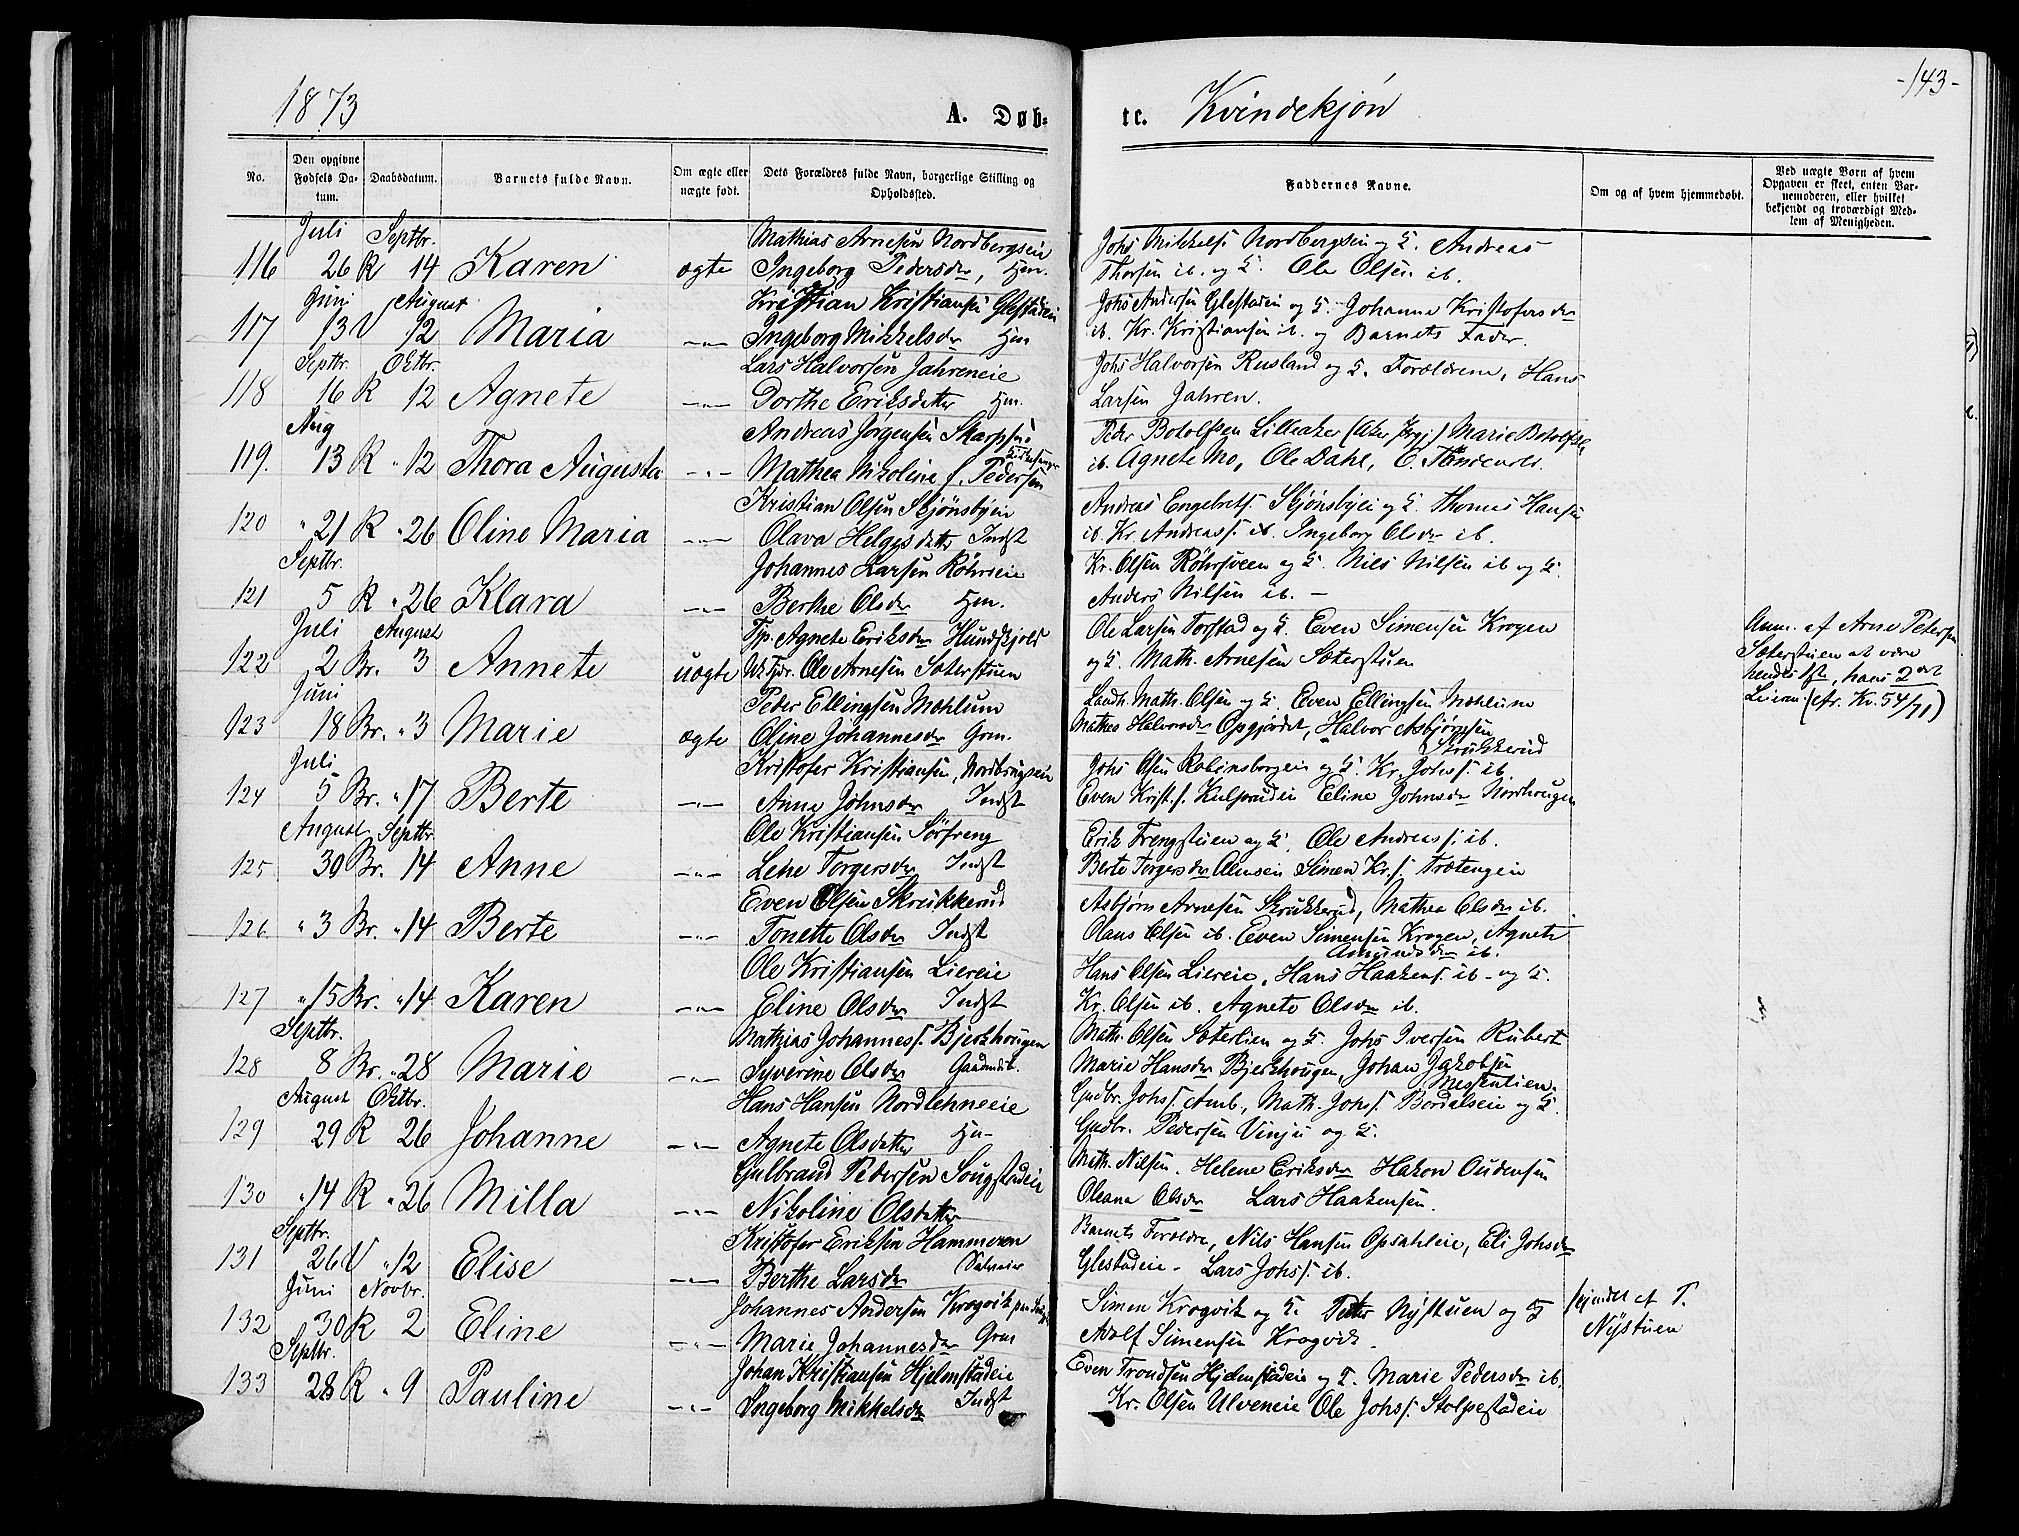 1873 A. Døb-
No. Den opgivne Fødsels Datum. Daabsdatum. Barnets fulde Navn. Om ægte eller uægte født. Dets Forældres fulde Navn, borgerlige Stilling og Opholdssted.
Juli Septbr. Mathias Arnesen Nordbergseie
116 26 R 14 Karen ægte Ingeborg Pedersdr, Hm.
Juni August Kristian Kristiansen Glestadeie
117 13 V 12 Maria —"— Ingeborg Mikkelsdr Hm
Septbr. Oktbr. Lars Halvorsen Jahreneie
118 16 R 12 Agnete —"— Dorthe Eriksdatter Hm.
Aug Andreas Jørgensen Skarpsno
119. 13 R " 12 Thora Augusta —"— Mathea Nikoline f. Pedersen
Kristian Olsen Skjønsbyeie
120 " 21 R " 26 Oline Maria —"— Olava Helgesdatter Indst
Septbr. Johannes Larsen Röhrseie
121 5 R " 26 Klara —"— Berthe Olsdr Hm.
Juli August Tp. Agnete Eriksdr Hundskjols
122 2 Br. 3 Annete uægte Ole Arnesen Sæterstuen
Juni Peder Ellingsen Mæhlum
123 18 Br. " 3 Marie ægte Oline Johannesdr Grm.
Juli Kristofer Kristiansen, Nordbergseie
124 5 Br. " 17 Berte —"— Anne Johnsdr Indst
August Septbr. Ole Kristiansen Sörfreng
125 30 Br. 14 Anne —"— Lene Torgersdr Indst
Even Olsen Skrukkerud
126 " 3 Br. " 14 Berte —"— Tonette Olsdr Indst
Ole Kristiansen Liereie
127 " 15 Br. " 14 Karen —"— Eline Olsdr Indst
Septbr. Mathias Johanness. Bjerkhougen
128 8 Br. " 28 Marie —"— Syverine Olsdr Gaardmdbr.
August Oktbr. Hans Hansen Nordlehneeie
129 29 R 26 Johanne —"— Agnete Olsdatter Hm
Gulbrand Pedersen Sougstadeie
130 " 14 R " 26 Milla —"— Nikoline Olsdatter
Septbr. Kristofer Eriksen Hammeren
131 26 V " 12 Elise —"— Berthe Larsdr
Juni Novbr. Johannes Andersen Krogvik
132 30 R 2 Eline —"— Marie Johannesdr Grm
Septbr. Johan Kristiansen Hjelmstadeie
133 28 R " 9 Pauline —"— Ingeborg Mikkelsdr Indst
te. Kvindekjøn -143-
Faddernes Navne. Om og af hvem hjemmedøbt. Ved uægte Børn af hvem Opgaven er skeet, enten Barnemoderen, eller hvilket bekjendt og troværdigt Medlem af Menigheden.
Johs Mikkels. Nordbergseie og K. Andreas
Thorsen ib. og K. Ole Olsen ib.
Johs Andersen Glestadeie og K. Johanne Kristofersdr
ib. Kr. Kristiansen ib. og Barnets Fader.
Johs Halvorsen Rusland og K. Forældrene, Hans
Larsen Jahren.
Peder Botolfsen Lilleaker (Aker Prgj.) Marie Botolfsdr
ib. Agnete Mo, Ole Dahl,
Andreas Engebrets. Skjønsbyei og K. Thomas Hansen
ib. Kr. Andreass. ib. Ingeborg Olsdr ib.
Kr. Olsen Röhrsveen og K. Nils Nilsen ib og K.
Anders Nilsen ib. —
Ole Larsen Torstad og K. Even Simensen Krogen
og K. Math. Arnesen Sæterstuen
Anm. af Arne Petersen
Sæterstuen at være
hendes 1ste, hans 2det
Leierm. (Nr. Kv. 54/71)
Landh. Math. Olsen og K. Even Ellingsen Mæhlum
Mathea Halvorsdr Opgjordet, Halvor Asbjørnsen
Skrukkerud
Johs Olsen Robinsborgeie og K. Kr. Johs. ib.
Even Krist.s. Kulsrudeie Eline Johnsdr Nordhougen
Erik Frengstuen og K. Ole Andreass. ib.
Berte Torgersdr Almseie Simen Kr.s. Trætengeie
Asbjørn Arnesen Skrukkerud, Mathea Olsdr ib.
Olaus Olsen ib. Even Simensen Krogen, Agnete
Amundsdr ib.
Hans Olsen Liereie, Hans Haakens. ib - og K.
Kr. Olsen ib. Agnete Olsdr ib.
Math. Olsen Sæterlien og K. Johs Iversen Rubert
Marie Hansdr Bjerkhougen, Johan Jakobsen
Mesteulien.
Gudbr. Johs. Amb, Math. Johs. Bordalseie og K.
Gudbr. Pedersen Vinju og K.
Math. Nilsen. Helene Eriksdr Hakon Oudensen
Oleana Olsdr Lars Haakensen.
Barnets Foreldre, Nils Hansen Opsahleie, Eli Johsdr
Glestadeie - Lars Johs. ib.
Simen Krogvik og K. Peter Nystuen og K
Adolf Simensen Krogvik.
af P.
Nystuen
Even Trondsen Hjelmstadeie og K. Marie Pedersdr ib.
Kr. Olsen Ulveneie Ole Johs. Stolpestadeie